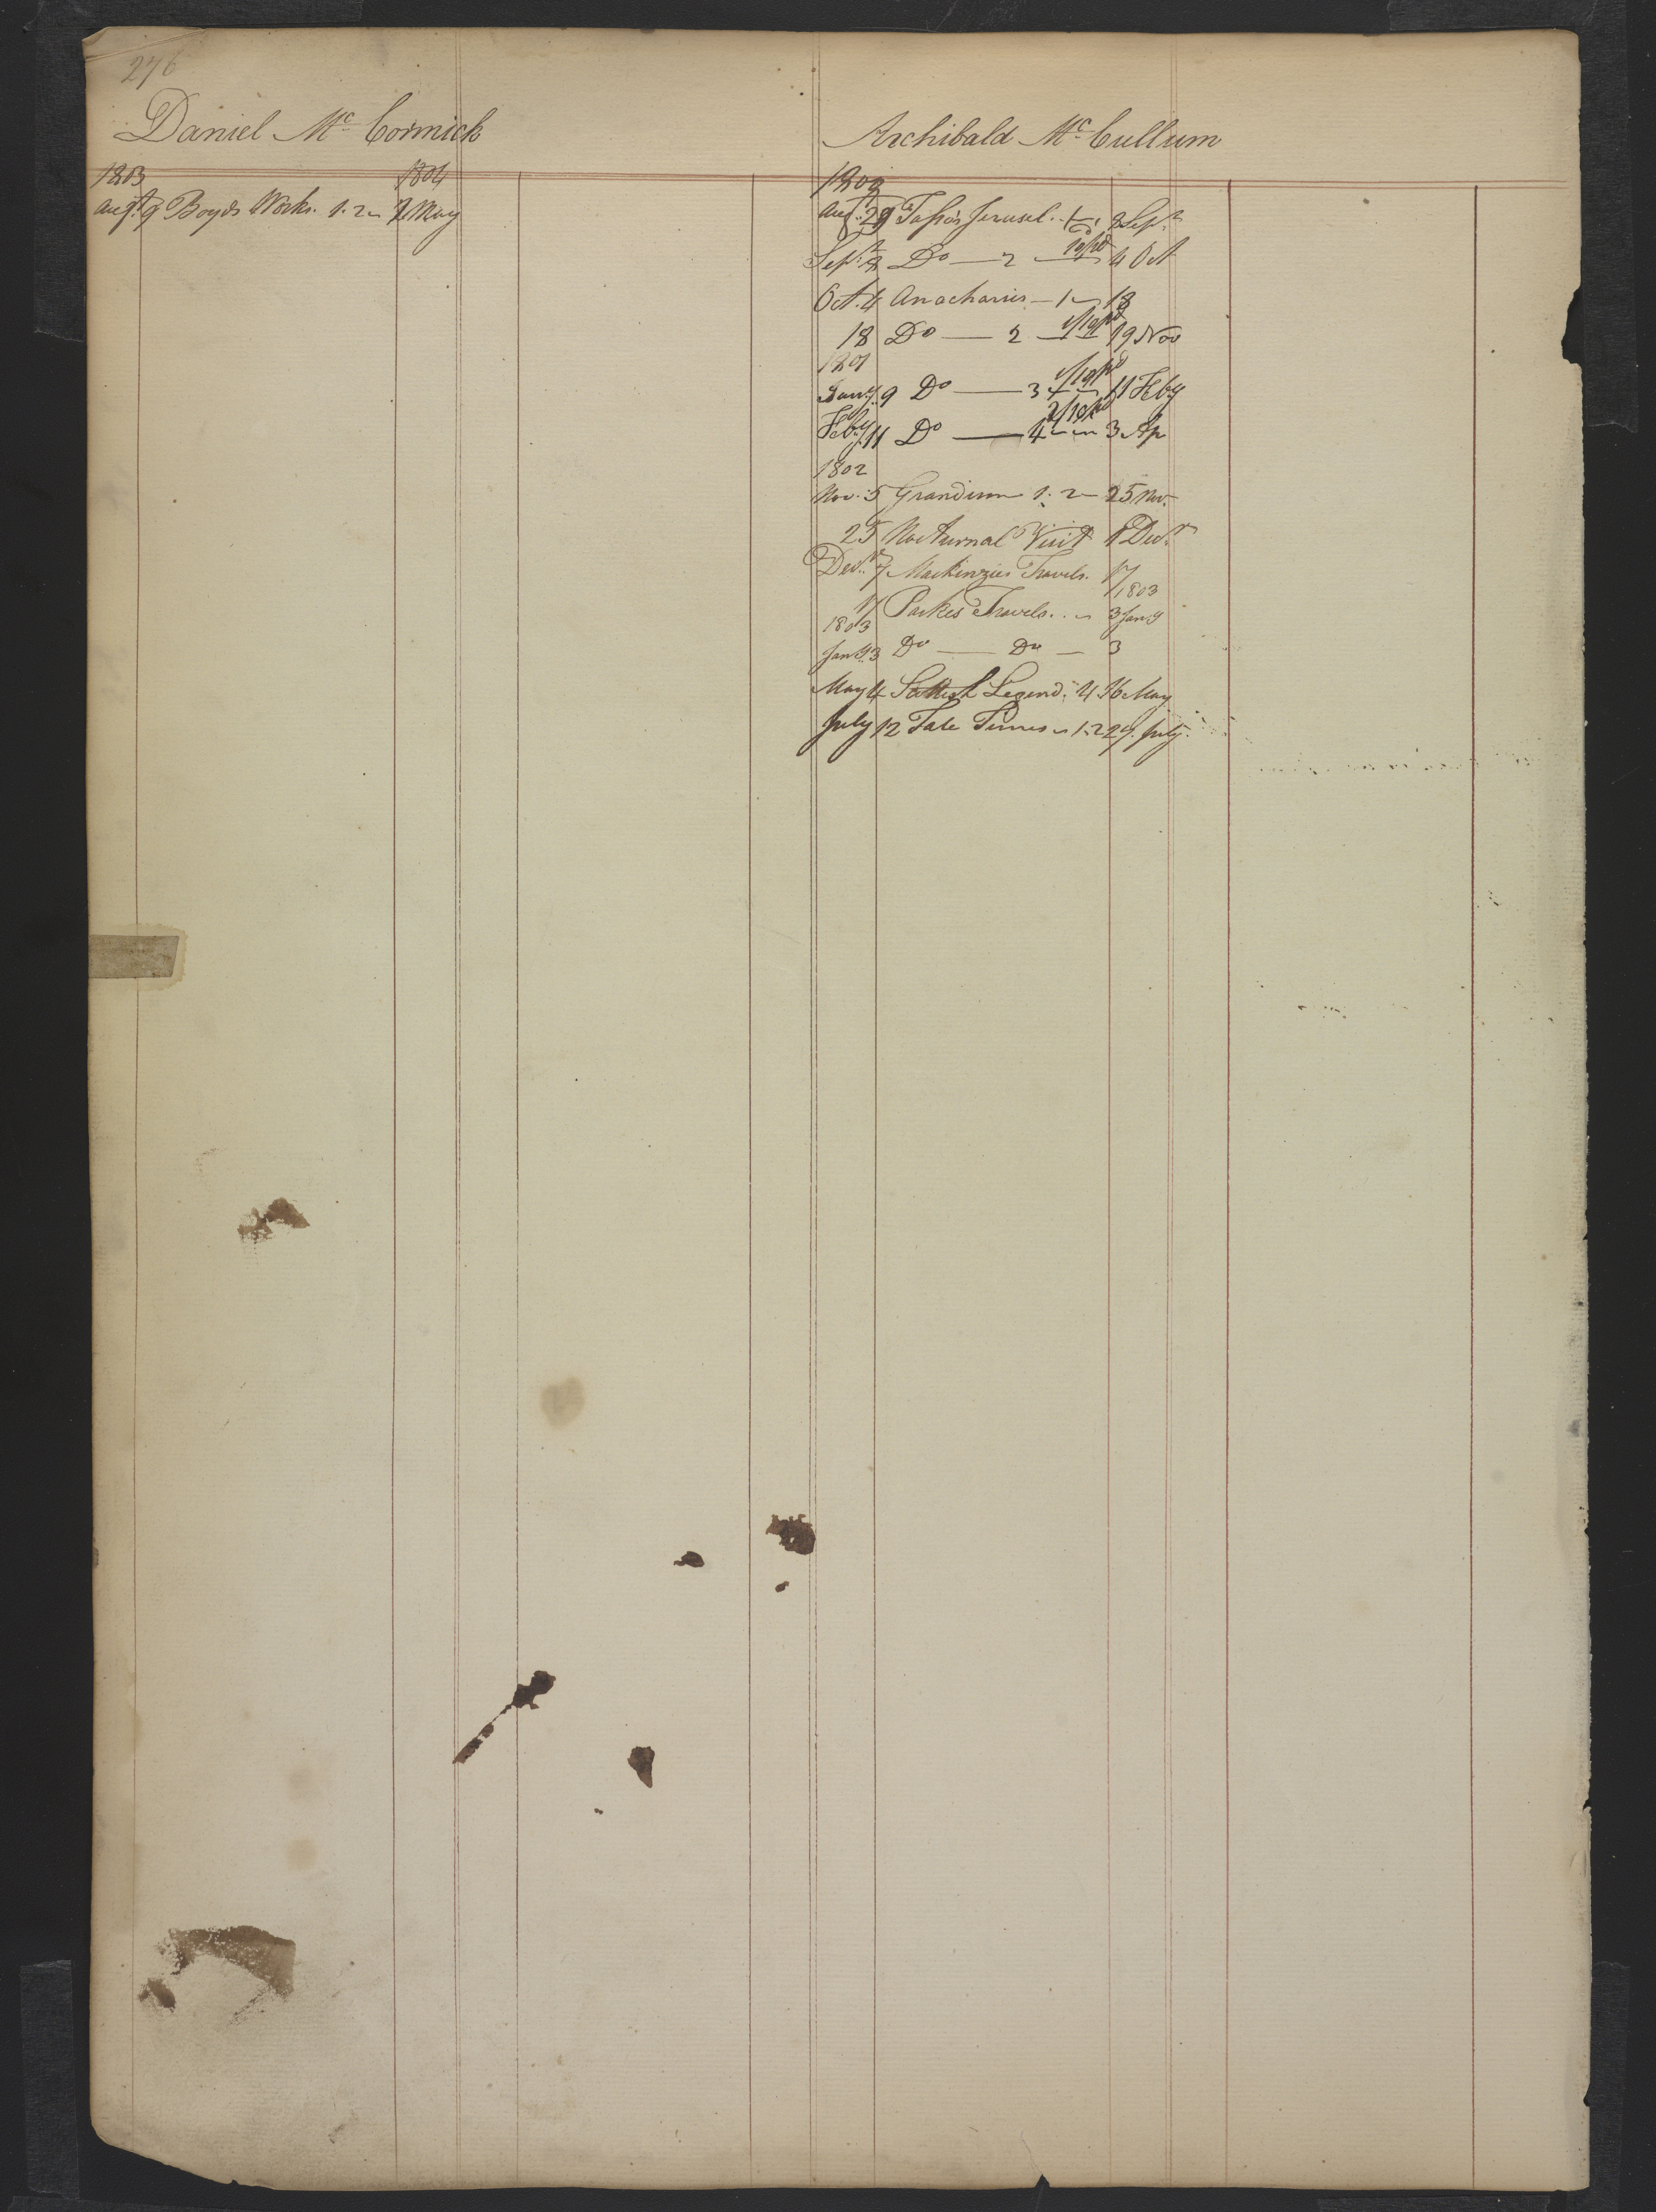 276
Daniel Mc Cormick
1803 1804
Augt 9 Boyds Works. 1. 2 2 May
Archibald Mc Cullum
1800
Augt. 29 Tasso's Jerusel. 1 8 Sepr
Sepr 8 Do — 2 4 Oct
Oct. 4 Anacharsis — 1 18
18 Do — 2 1/10pd 19 Nov
1801
Jany. 9 Do — 3 1/10pd 11 Feby
Feby. 11 Do — 4 2/10pd 3 Ap
1802
Nov. 5 Grandison 1. 2 25 Nov.
25 Nocturnal Visit Decr
Decr. 7 Mackinzies Travels. 17
17 Parkes Travels. 1803 3 Jany
1803
Jany. 3 Do — Do — 3
May 4 Scottish Legend. 4 16 May
July 12 Tale Times 1. 2 29. July.